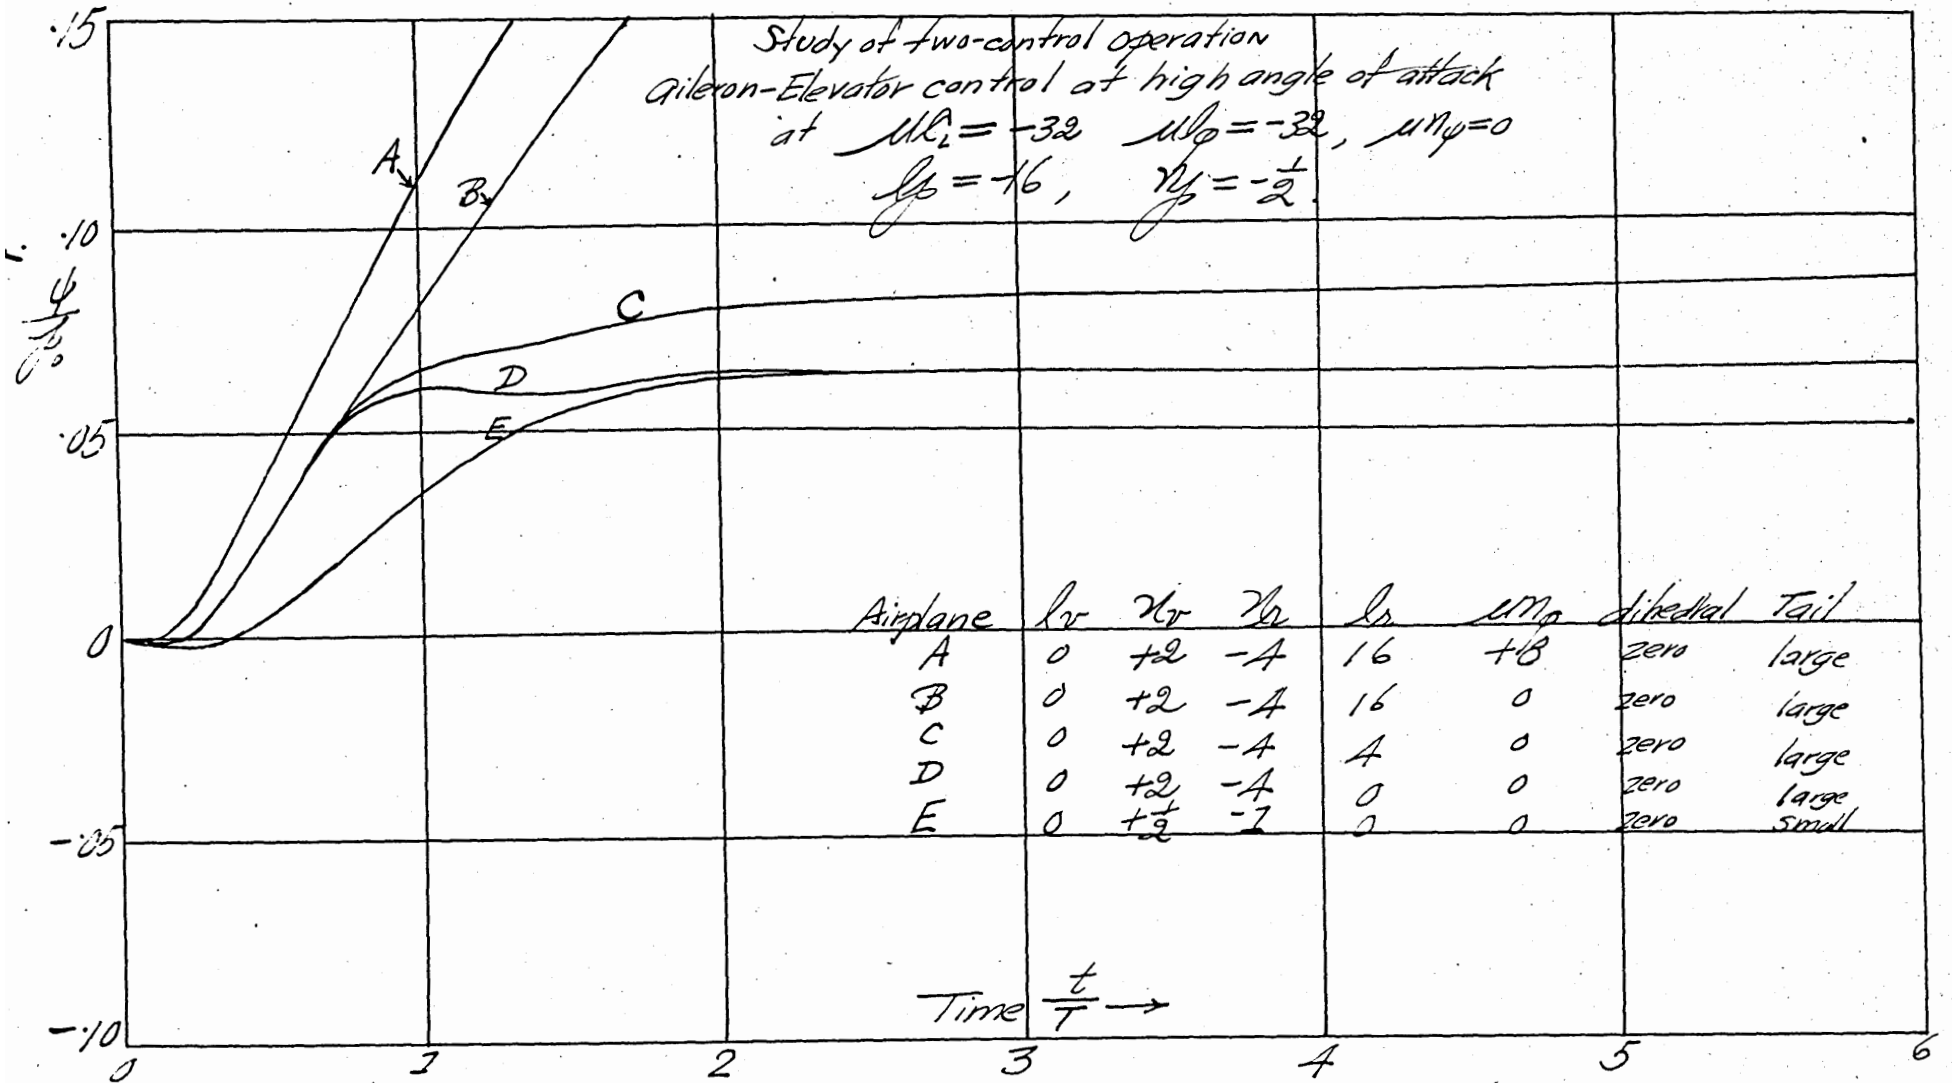 .15
Study of two-control operation
Aileron-Elevator control at high angle of attack
at
μn_ψ=0
= -32
=-32,
= -16, = -1/2.
A
B
.10
ψ
C
D
.05
E
Airplane l_v n_v n_r l_r μn_φ dihedral Tail
0
A 0 +2 -4 16 +8 zero large
B 0 +2 -4 16 0 zero large
C 0 +2 -4 4 0 zero large
D 0 +2 -4 0 0 zero large
E 0 +1/2 -1 0 0 zero small
-.05
Time t/T →
-.10
0 1 2 3 4 5 6